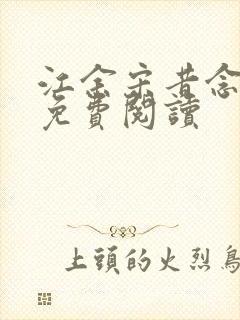 江金宋昔念
免費閱讀
上頭的火烈鳥